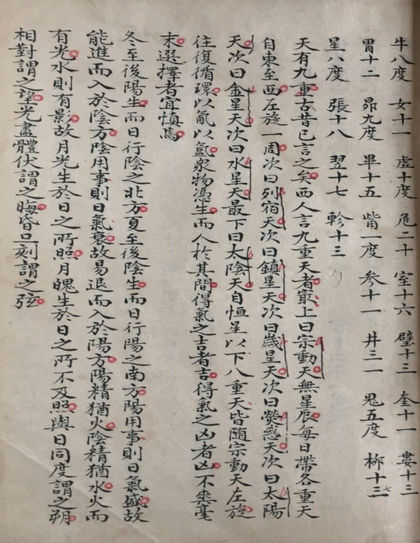 牛八度 女十一 虛十度 危二十 室十六 壁十三 奎十一 婁十三
胃十二 昴九度 畢十五 觜一度 参十一 井三一 鬼五度 柳十三
星八度 張十八 翌十七 軫十三
天有九重古昔已言之矣西人言九重天者最上曰宗動天無星辰每日帶各重天
自東至西左旋一周次曰列宿天次曰鎮星天次曰歲星天次曰熒惑天次曰太陽
天次曰金星天次曰水星天最下曰太陰天自恒星以下八重天皆随宗動天左旋
往復循環以氣以氣衆物憑生而人於其間得氣之吉者吉得氣之凶者凶不爽毫
末選擇者宜慎焉
冬至後陽生而日行陰之北方夏至後陰生而日行陽之南方陽用事則日氣盛故
能進而入於陰方陰用事則日氣衰故易退而入於陽方陽精猶火陰精猶水火而
有光水則有影故月光生於日之所照月魄生於日之所不及照與日同度謂之朔
相對謂之望光盡體伏謂之晦昏旦刻謂之弦